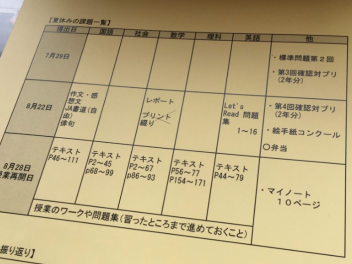 【夏休みの課題一覧】
提出日 国語 社会 数学 理科 英語 他
7月29日
・標準問題第2回
・第3回確認対プリ
(2年分)
8月22日
作文・感
想文
JA書道(自
由)
俳句
レポート
プリント
綴り
Let's
Read 問題
集
1～16
・第4回確認対プリ
(2年分)
・絵手紙コンクール
○弁当
8月28日
授業再開日
テキスト
P46～111
テキスト
P2～45
p68～99
テキスト
P2～67
p86～93
テキスト
P56～77
P154～171
テキスト
P44～79
・マイノート
10ページ
授業のワークや問題集(習ったところまで進めておくこと)
振り返り】